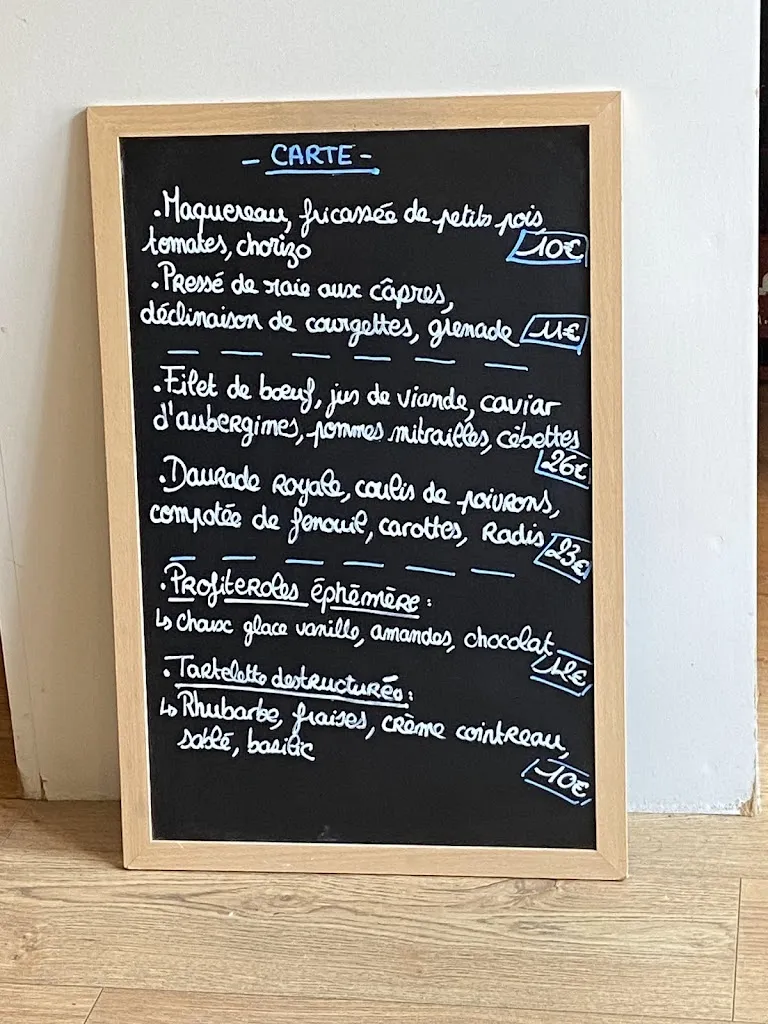 - CARTE -
.Maquereau, fricassée de petits pois,
tomates, chorizo
10€
.Pressé de raie aux câpres,
déclinaison de courgettes, grenade 11€
.Filet de bœuf, jus de viande, caviar
d'aubergines, pommes mitrailles, cébettes
26€
.Daurade royale, coulis de poivrons,
compotée de fenouil, carottes, Radis 23€
.Profiteroles éphémère :
↳ choux glace vanille, amandes, chocolat
.Tartelette destructurée :
↳ Rhubarbe, fraises, crème cointreau,
sablé, basilic
10€